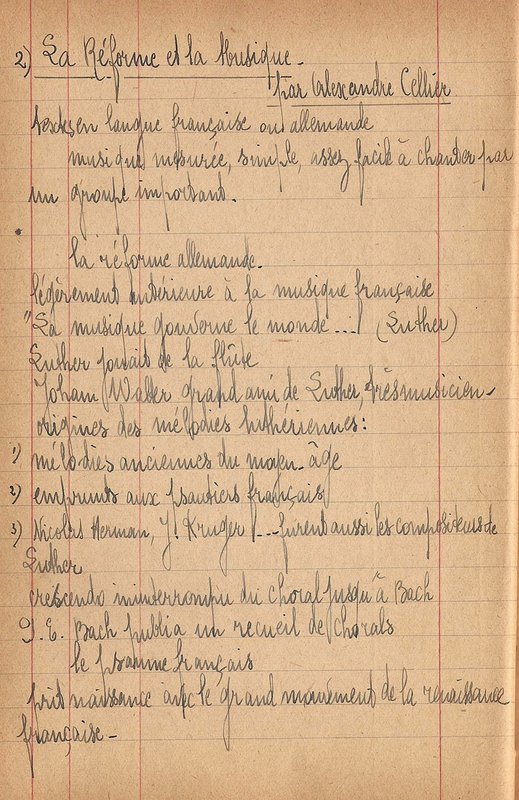 2) La Réforme et la Musique -
par Alexandre Cellier
textes en langue française ou allemande
musique mesurée, simple, assez facile à chanter par
un groupe important.
la réforme allemande.
légèrement antérieure à la musique française
"La musique gouverne le monde... (Luther)
Luther jouait de la flûte
Joham Walter grand ami de Luther, très musicien -
origines des mélodies luthériennes :
1) mélodies anciennes du moyen-âge
2) emprunts aux psautiers français
3) Nicolas Herman, J. Kruger ... furent aussi les compositeurs de
Luther
crescendo ininterrompu du choral jusqu'à Bach
Bach publia un recueil de chorals
le psaume français
prit naissance avec le grand mouvement de la renaissance
française -